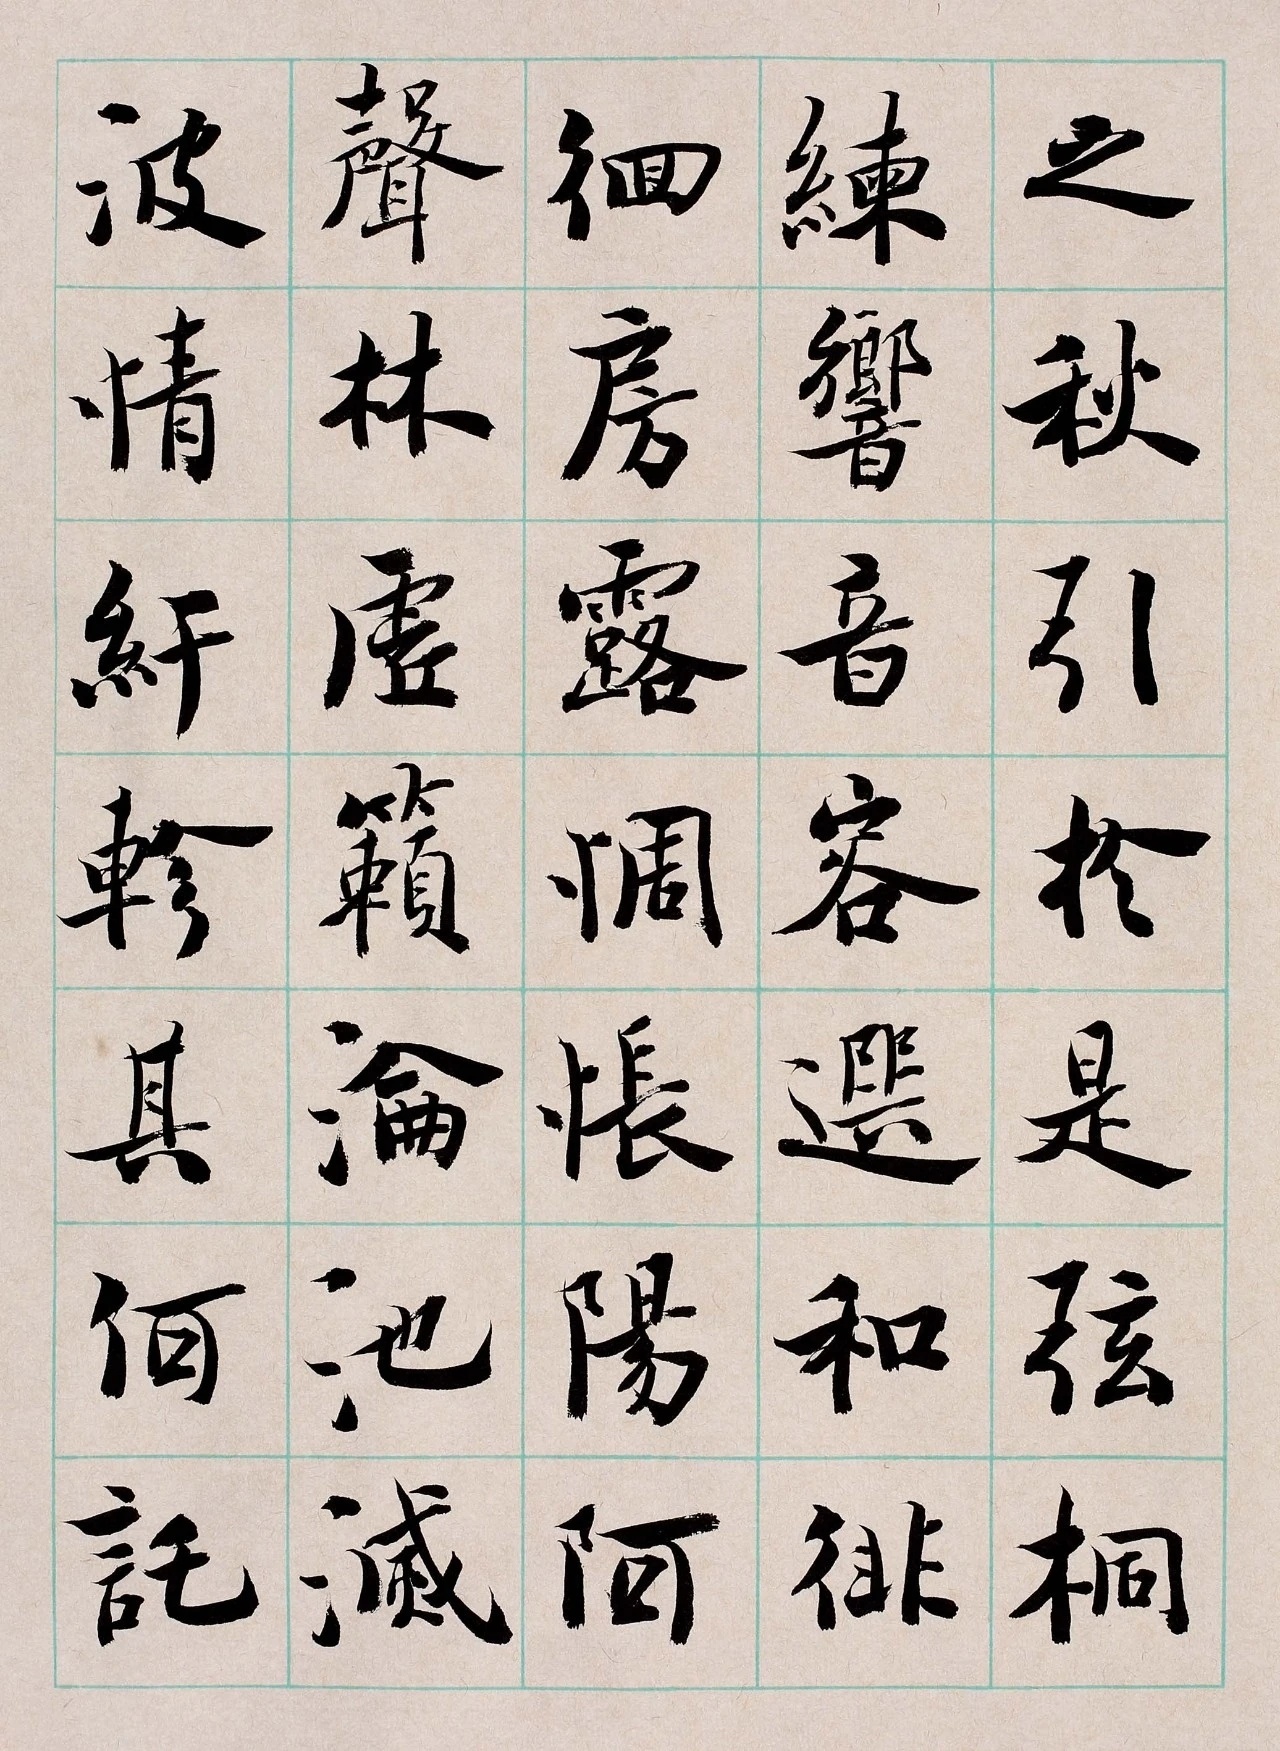 之秋引於是弦桐
練響音容選和徘
徊房露惆悵陽阿
聲林虛籟淪池滅
波情紆軫其何託